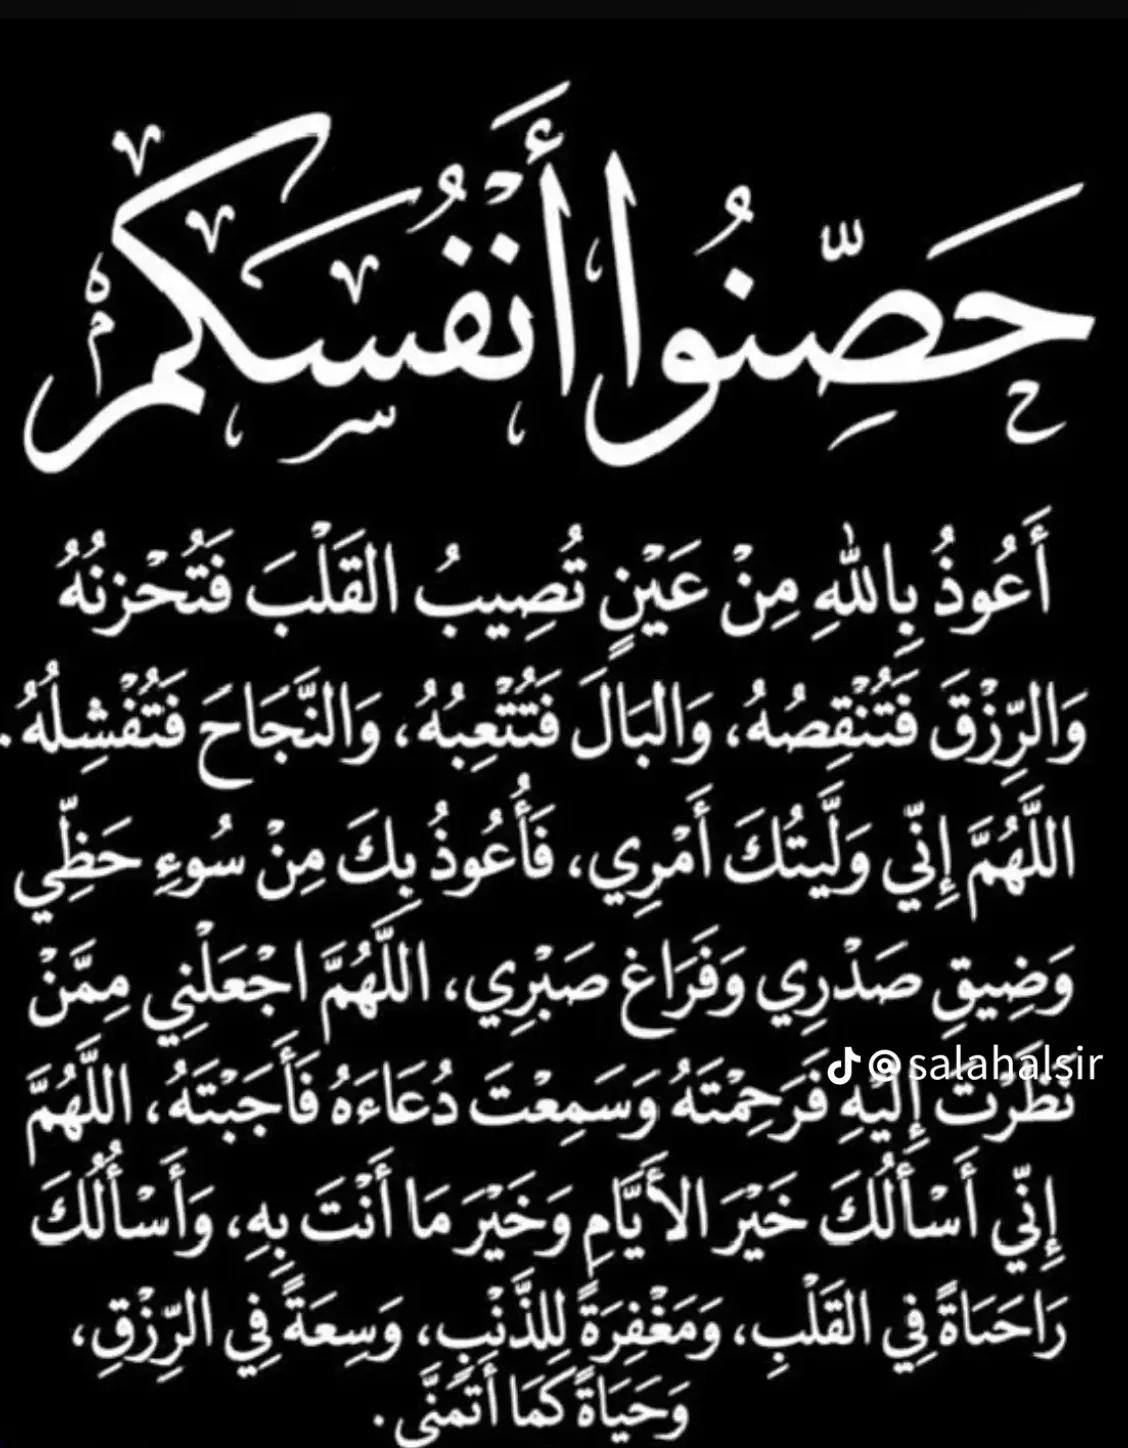 حَصِّنُوا أَنْفُسَكُمْ
أَعُوذُ بِاللهِ مِنْ عَيْنٍ تُصِيبُ القَلْبَ فَتُحْزِنُهُ
وَالرِّزْقَ فَتُنْقِصُهُ، وَالبَالَ فَتُتْعِبُهُ، وَالنَّجَاحَ فَتُفْشِلُهُ.
اللَّهُمَّ إِنِّي وَلَّيتُكَ أَمْرِي، فَأَعُوذُ بِكَ مِنْ سُوءِ حَظِّي
وَضِيقِ صَدْرِي وَفَرَاغِ صَبْرِي، اللَّهُمَّ اجْعَلْنِي مِمَّنْ
@salahalsir
نَظَرْتَ إِلَيْهِ فَرَحِمْتَهُ وَسَمِعْتَ دُعَاءَهُ فَأَجَبْتَهُ، اللَّهُمَّ
إِنِّي أَسْأَلُكَ خَيْرَ الأَيَّامِ وَخَيْرَ مَا أَنْتَ بِهِ، وَأَسْأَلُكَ
رَاحَاةً فِي القَلْبِ، وَمَغْفِرَةً لِلذَّنْبِ، وَسِعَةً فِي الرِّزْقِ،
وَحَيَاةً كَمَا أَتَمَنَّى.